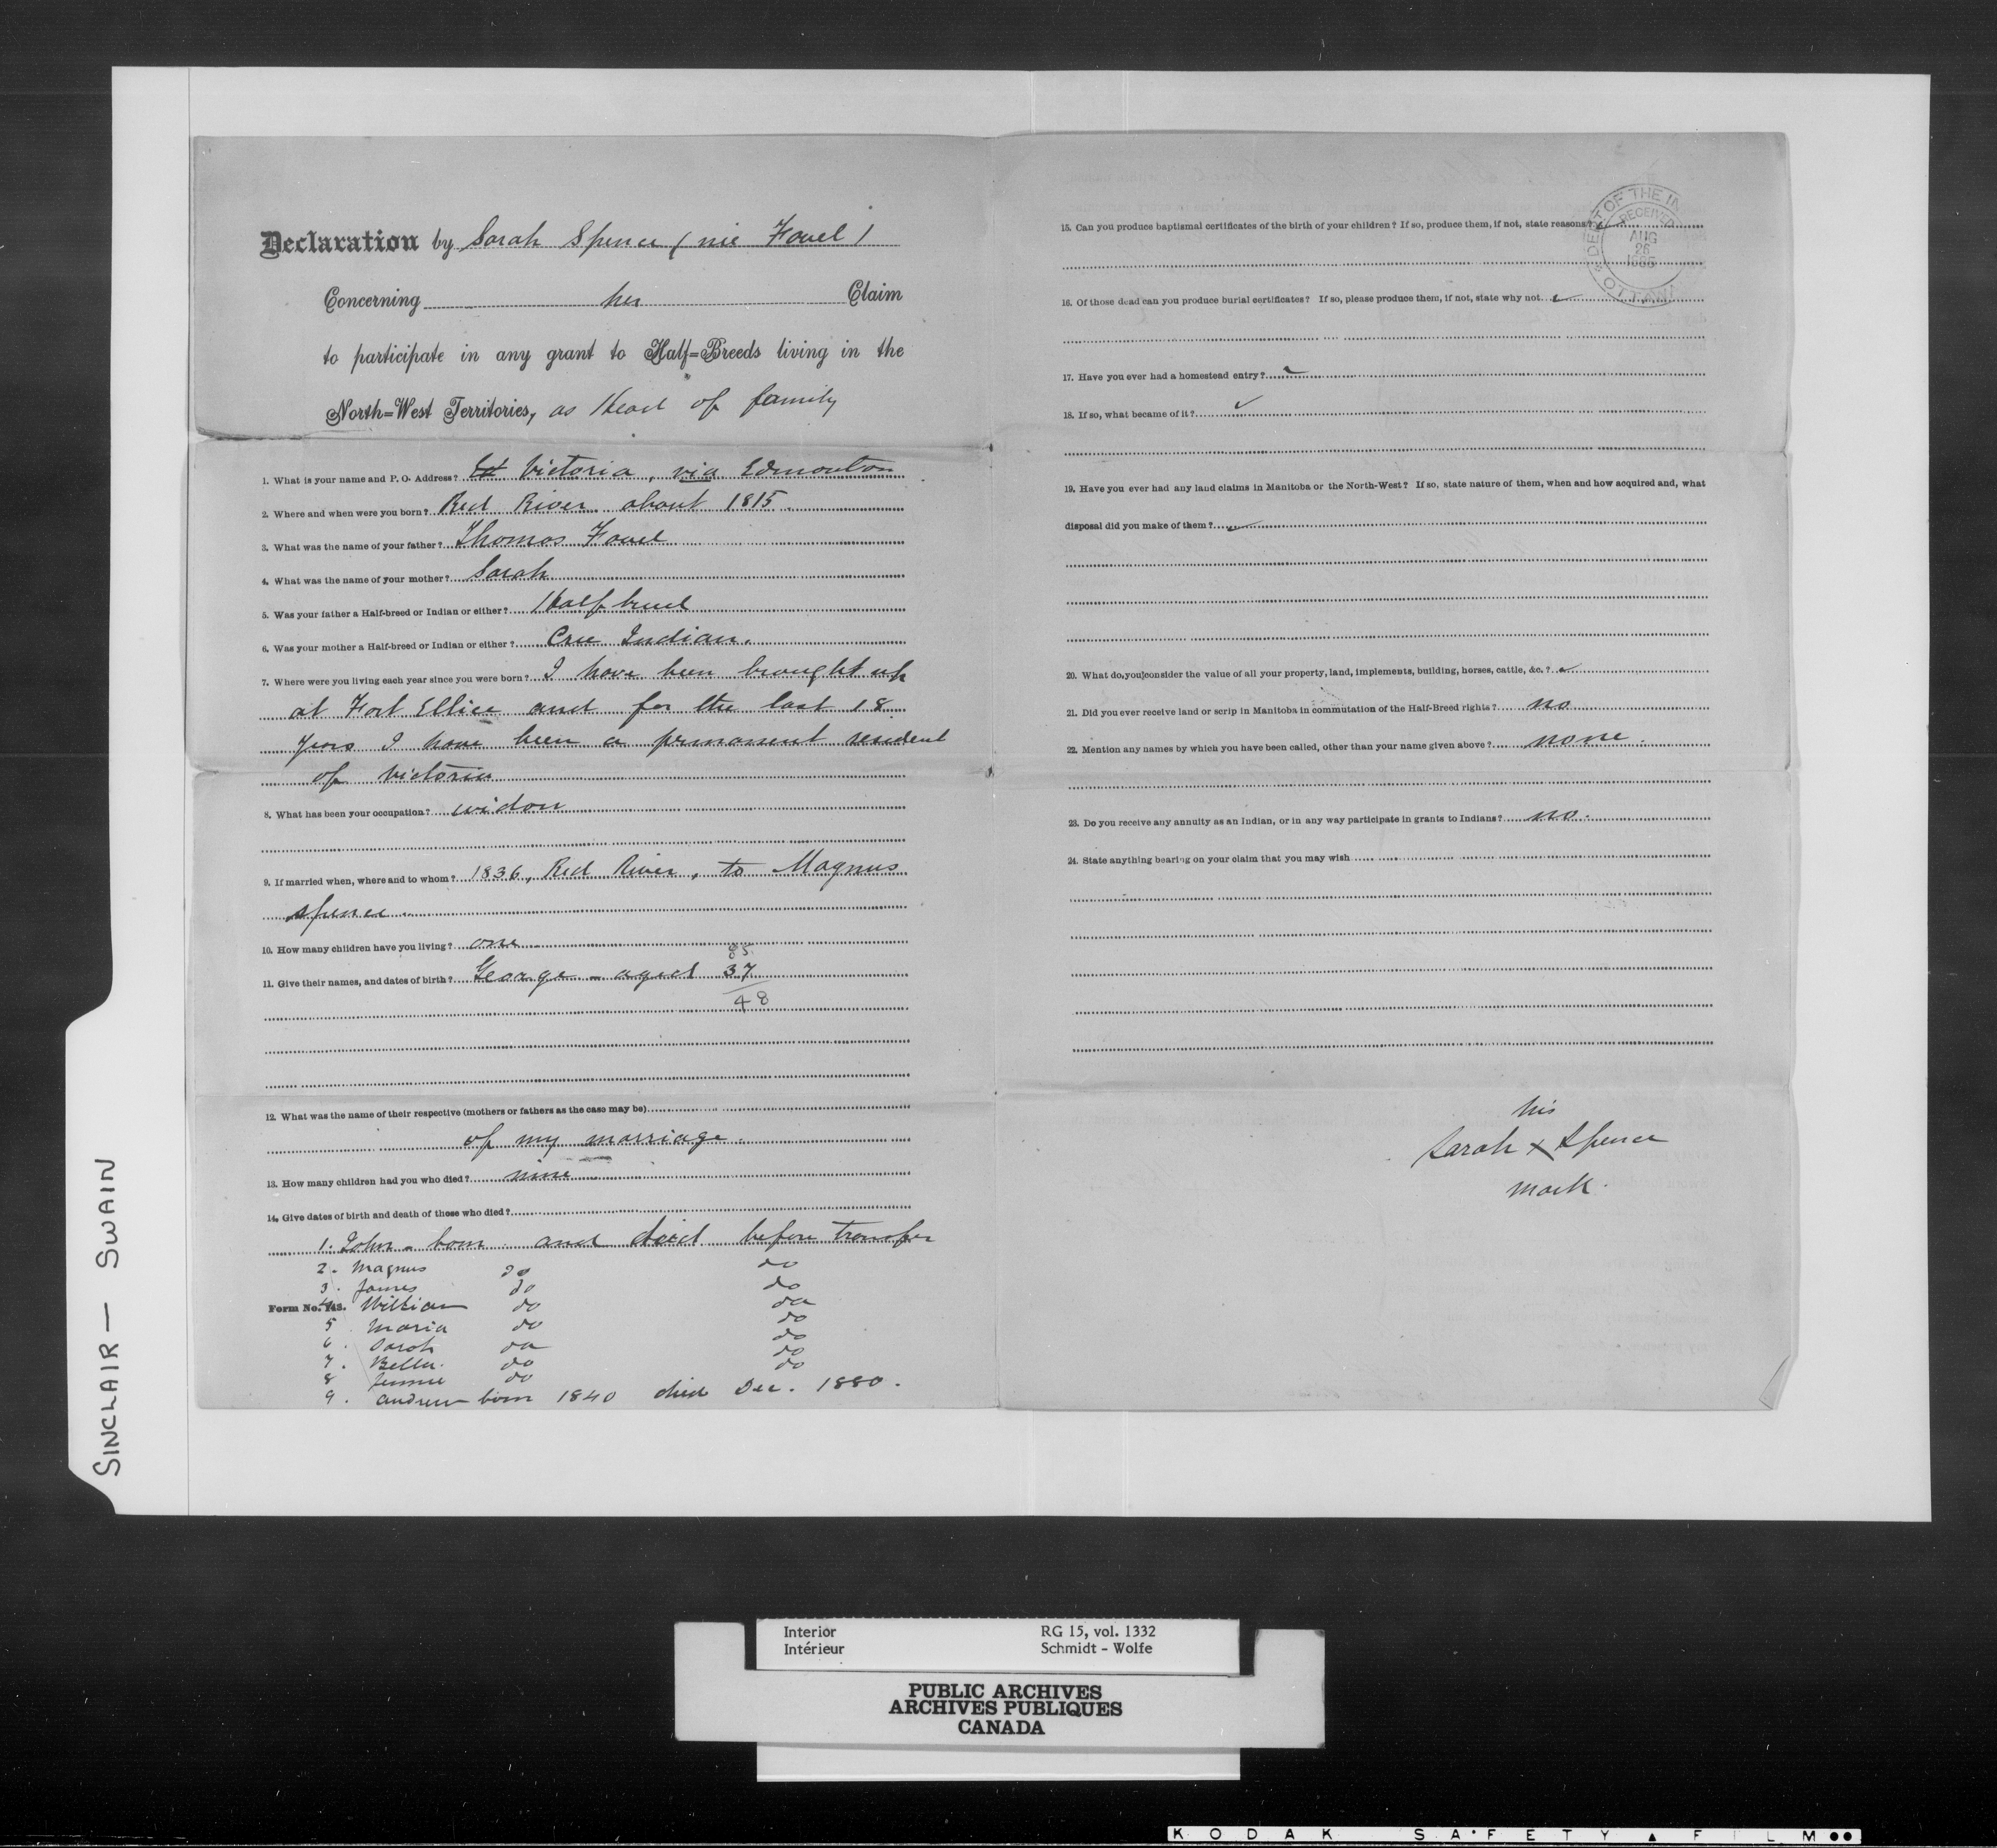 Declaration by Sarah Spence (nie Favel)
Concerning her Claim
to participate in any grant to Half=Breeds living in the
North=West Territories, as Head of family
1. What is your name and P. O. Address? Victoria, via Edmonton
2. Where and when were you born? Red River about 1815.
3. What was the name of your father? Thomas Favel
4. What was the name of your mother? Sarah
5. Was your father a Half-breed or Indian or either? Half breed
6. Was your mother a Half-breed or Indian or either? Cree Indian.
7. Where were you living each year since you were born? I have been brought up
at Fort Ellice and for the last 18
years I have been a permanent resident
of Victoria
8. What has been your occupation? widow
9. If married when, where and to whom? 1836, Red River, to Magnus
Spence.
10. How many children have you living? one
85
11. Give their names, and dates of birth? George - aged 37
48
12. What was the name of their respective (mothers or fathers as the case may be)
of my marriage.
13. How many children had you who died? nine
14. Give dates of birth and death of these who died?
1. John - born and died before transfer
2. Magnus do do
3. James do do
Form No. 143. William do do
5. Maria do do
6. Sarah do do
7. Bella. do do
8 Jemmie do do
9. Andrew born 1840 died Dec. 1880.
15. Can you produce baptismal certificates of the birth of your children? If so, produce them, if not, state reasons?
16. Of those dead can you produce burial certificates? If so, please produce them, if not, state why not
17. Have you ever had a homestead entry?
18. If so, what became of it?
19. Have you ever had any land claims in Manitoba or the North-West? If so, state nature of them, when and how acquired and, what
disposal did you make of them?
20. What do you consider the value of all your property, land, implements, building, horses, cattle, &c.?
21. Did you ever receive land or scrip in Manitoba in commutation of the Half-Breed rights? no
22. Mention any names by which you have been called, other than your name given above? none.
23. Do you receive any annuity as an Indian, or in any way participate in grants to Indians? no.
24. State anything bearing on your claim that you may wish
his
Sarah x Spence
mark.
DEPT OF THE IN
RECEIVED
AUG
26
1885
OTTAWA
SINCLAIR — SWAIN
Interior RG 15, vol. 1332
Intérieur Schmidt - Wolfe
PUBLIC ARCHIVES
ARCHIVES PUBLIQUES
CANADA
KODAK SAFETY FILM